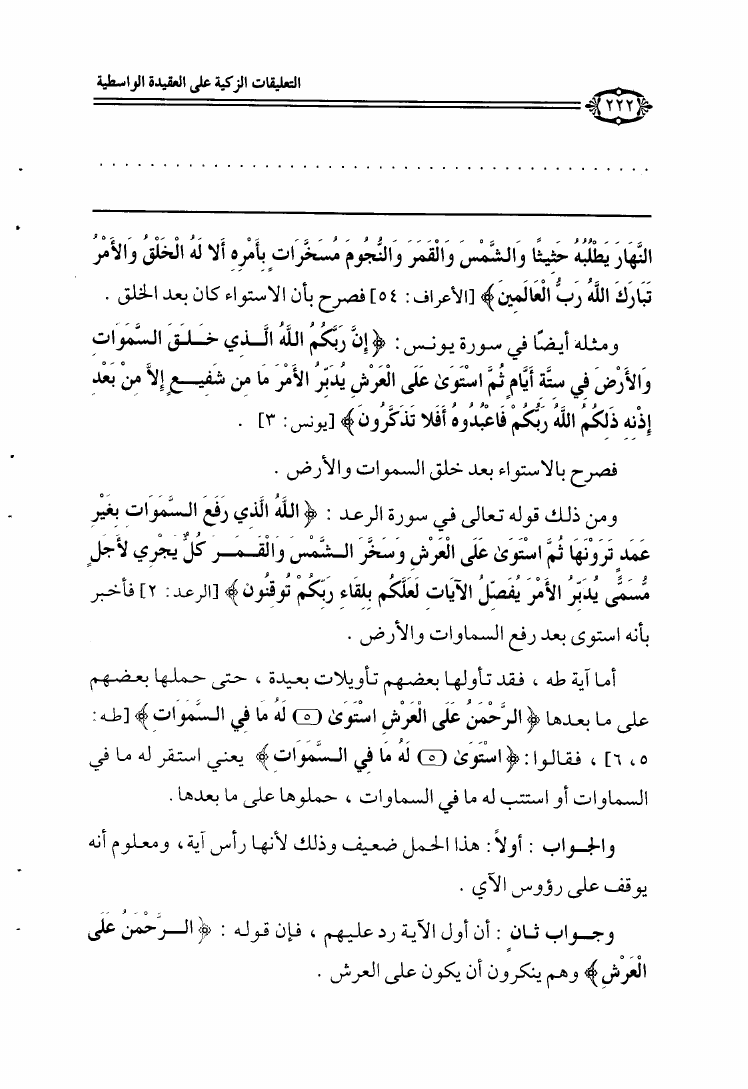 التعليقات الزكية على العقيدة الواسطية
٢٢٢
النَّهَارَ يَطْلُبُهُ حَثِيثًا وَالشَّمْسَ وَالْقَمَرَ وَالنُّجُومَ مُسَخَّرَاتٍ بِأَمْرِهِ أَلا لَهُ الْخَلْقُ وَالأَمْرُ
تَبَارَكَ اللَّهُ رَبُّ الْعَالَمِينَ﴾ [الأعراف: ٥٤] فصرح بأن الاستواء كان بعد الخلق .
ومثله أيضًا في سورة يونس: ﴿ إِنَّ رَبَّكُمُ اللَّهُ الَّذِي خَلَقَ السَّمَوَاتِ
وَالأَرْضَ فِي سِتَّةِ أَيَّامٍ ثُمَّ اسْتَوَىٰ عَلَى الْعَرْشِ يُدَبِّرُ الأَمْرَ مَا مِن شَفِيعٍ إِلاَّ مِنْ بَعْدِ
إِذْنِهِ ذَلِكُمُ اللَّهُ رَبُّكُمْ فَاعْبُدُوهُ أَفَلا تَذَكَّرُونَ﴾ [يونس: ٣] .
فصرح بالاستواء بعد خلق السموات والأرض .
ومن ذلك قوله تعالى في سورة الرعد : ﴿ اللَّهُ الَّذِي رَفَعَ السَّمَوَاتِ بِغَيْرِ
عَمَدٍ تَرَوْنَهَا ثُمَّ اسْتَوَىٰ عَلَى الْعَرْشِ وَسَخَّرَ الشَّمْسَ وَالْقَمَرَ كُلٌّ يَجْرِي لأَجَلٍ
مُّسَمًّى يُدَبِّرُ الأَمْرَ يُفَصِّلُ الآيَاتِ لَعَلَّكُم بِلِقَاءِ رَبِّكُمْ تُوقِنُونَ ﴾ [الرعد: ٢] فأخبر
بأنه استوى بعد رفع السماوات والأرض .
أما آية طه ، فقد تأولها بعضهم تأويلات بعيدة ، حتى حملها بعضهم
على ما بعدها ﴿ الرَّحْمَنُ عَلَى الْعَرْشِ اسْتَوَىٰ (٥) لَهُ مَا فِي السَّمَوَاتِ ﴾ [طه:
٥، ٦] ، فقالوا: ﴿ اسْتَوَىٰ (٥) لَهُ مَا فِي السَّمَوَاتِ ﴾ يعني استقر له ما في
السماوات أو استتب له ما في السماوات ، حملوها على ما بعدها .
والجواب : أولاً: هذا الحمل ضعيف وذلك لأنها رأس آية، ومعلوم أنه
يوقف على رؤوس الآي .
وجواب ثانٍ : أن أول الآية رد عليهم ، فإن قوله : ﴿ الرَّحْمَنُ عَلَى
الْعَرْشِ﴾ وهم ينكرون أن يكون على العرش .